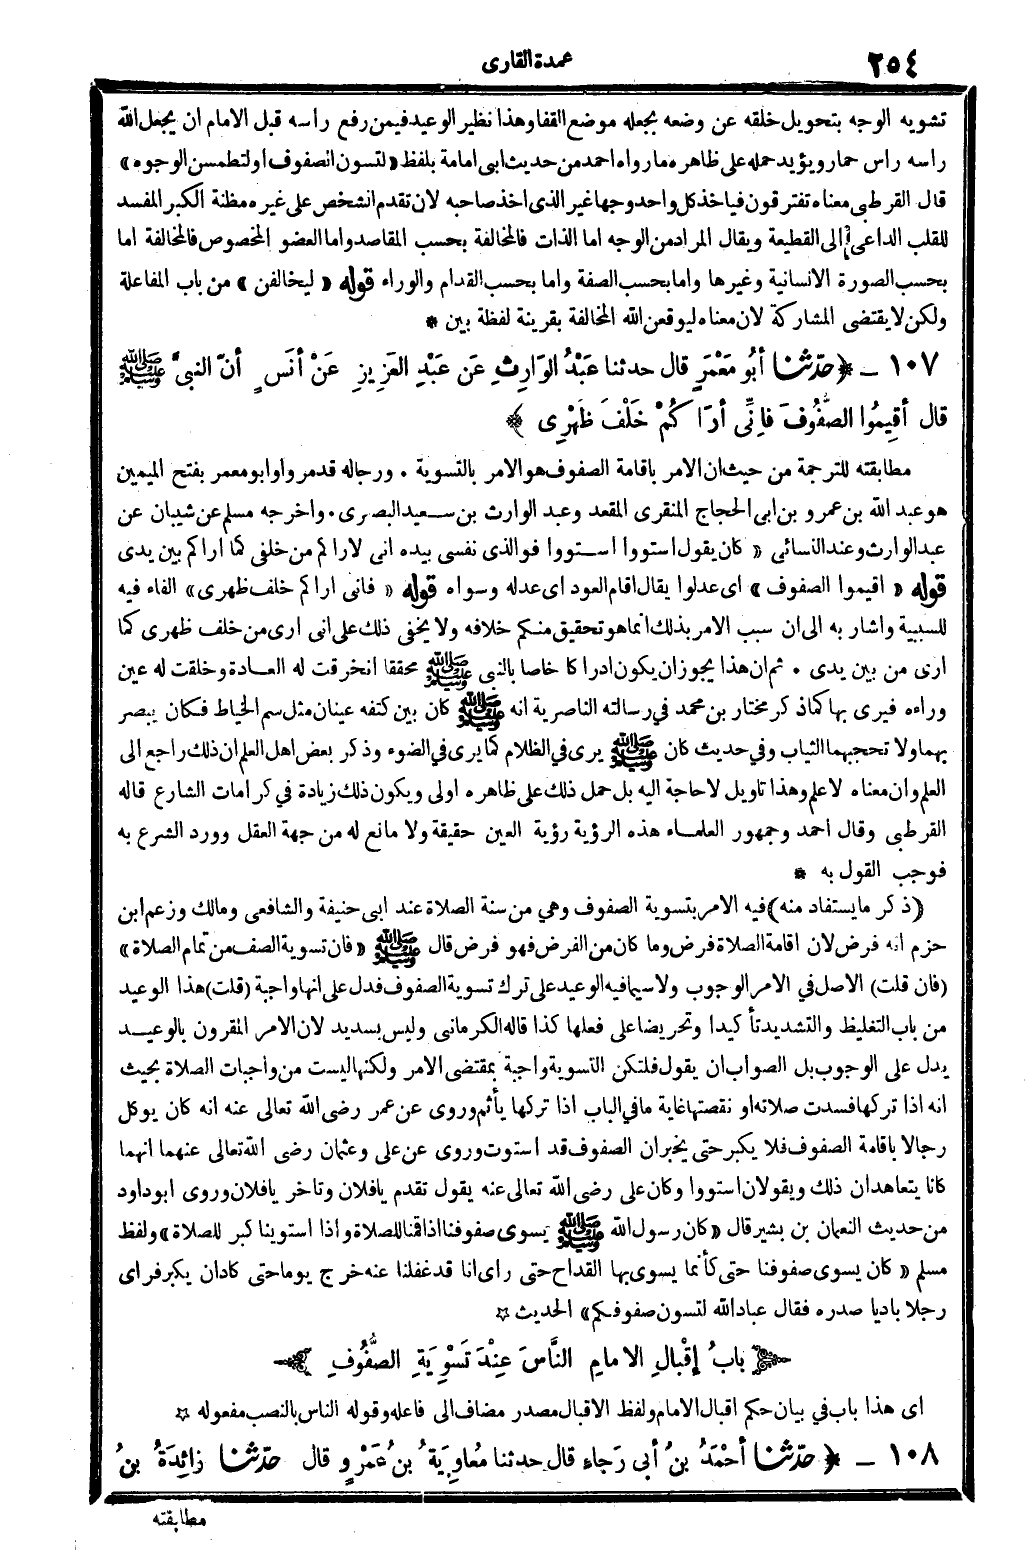 ٢٥٤
عمدة القارى
تشويه الوجه بتحويل خلقه عن وضعه بجعله موضع القفا وهذا نظير الوعيد فيمن رفع راسه قبل الامام ان يجعل الله
راسه راس حمار ويؤيد حمله على ظاهره ما رواه احمد من حديث ابى امامة بلفظ « لتسون الصفوف او لتطمسن الوجوه »
قال القرطبى معناه تفترقون فياخذ كل واحد وجها غير الذى اخذ صاحبه لان تقدم الشخص على غيره مظنة الكبر المفسد
للقلب الداعى الى القطيعة ويقال المراد من الوجه اما الذات فالمخالفة بحسب المقاصد واما العضو المخصوص فالمخالفة اما
بحسب الصورة الانسانية وغيرها واما بحسب الصفة واما بحسب القدام والوراء قوله « ليخالفن » من باب المفاعلة
ولكن لا يقتضى المشاركة لان معناه ليوقعن الله المخالفة بقرينة لفظة بين *
١٠٧ ـ ﴿ حَدَّثَنَا أَبُو مَعْمَرٍ قال حدثنا عَبْدُ الوَارِثِ عَن عَبْدِ العَزِيزِ عَنْ أنَسٍ أنَّ النبىَّ ﷺ
قال أقِيمُوا الصُّفُوفَ فَإِنِّى أرَاكُمْ خَلْفَ ظَهْرِى ﴾
مطابقته للترجمة من حيث ان الامر باقامة الصفوف هو الامر بالتسوية . ورجاله قد مروا وابو معمر بفتح الميمين
هو عبد الله بن عمرو بن ابى الحجاج المنقرى المقعد وعبد الوارث بن سعيد البصرى . واخرجه مسلم عن شيبان عن
عبد الوارث وعند النسائى « كان يقول استووا استووا فوالذى نفسى بيده انى لاراكم من خلفى كما اراكم بين يدى
قوله « اقيموا الصفوف » اى عدلوا يقال اقام العود اى عدله وسواه قوله « فانى اراكم خلف ظهرى » الفاء فيه
للسببية واشار به الى ان سبب الامر بذلك انما هو تحقيق منكم خلافه ولا يخفى ذلك على انى ارى من خلف ظهرى كما
ارى من بين يدى . ثم ان هذا يجوز ان يكون ادراكا خاصا بالنبى ﷺ محققا انخرقت له العادة وخلقت له عين
وراءه فيرى بها كما ذكر مختار بن محمد في رسالته الناصرية انه ﷺ كان بين كتفه عينان مثل سم الخياط فكان يبصر
بهما ولا تحجبهما الثياب وفي حديث كان ﷺ يرى في الظلام كما يرى في الضوء وذكر بعض اهل العلم ان ذلك راجع الى
العلم وان معناه لاعلم وهذا تاويل لا حاجة اليه بل حمل ذلك على ظاهره اولى ويكون ذلك زيادة في كرامات الشارع قاله
القرطبى وقال احمد وجمهور العلماء هذه الرؤية رؤية العين حقيقة ولا مانع له من جهة العقل وورد الشرع به
فوجب القول به *
( ذكر ما يستفاد منه ) فيه الامر بتسوية الصفوف وهي من سنة الصلاة عند ابى حنيفة والشافعى ومالك وزعم ابن
حزم انه فرض لان اقامة الصلاة فرض وما كان من الفرض فهو فرض قال ﷺ « فان تسوية الصف من تمام الصلاة »
(فان قلت) الاصل في الامر الوجوب ولا سيما فيه الوعيد على ترك تسوية الصفوف فدل على انها واجبة (قلت) هذا الوعيد
من باب التغليظ والتشديد تأكيدا وتحريضا على فعلها كذا قاله الكرمانى وليس بسديد لان الامر المقرون بالوعيد
يدل على الوجوب بل الصواب ان يقول فلتكن التسوية واجبة بمقتضى الامر ولكنها ليست من واجبات الصلاة بحيث
انه اذا تركها فسدت صلاته او نقصتها غاية ما في الباب اذا تركها يأثم وروى عن عمر رضى الله تعالى عنه انه كان يوكل
رجالا باقامة الصفوف فلا يكبر حتى يخبر ان الصفوف قد استوت وروى عن على وعثمان رضى الله تعالى عنهما انهما
كانا يتعاهدان ذلك ويقولان استووا وكان على رضى الله تعالى عنه يقول تقدم يا فلان وتاخر يا فلان وروى ابو داود
من حديث النعمان بن بشير قال « كان رسول الله ﷺ يسوى صفوفنا اذا قمنا للصلاة واذا استوينا كبر للصلاة » ولفظ
مسلم « كان يسوى صفوفنا حتى كأنما يسوى بها القداح حتى راى انا قد غفلنا عنه خرج يوما حتى كاد ان يكبر فراى
رجلا باديا صدره فقال عباد الله لتسون صفوفكم » الحديث *
بابُ إقْبالِ الامامِ النَّاسَ عِنْدَ تَسْوِيَةِ الصُّفُوفِ
اى هذا باب في بيان حكم اقبال الامام ولفظ الاقبال مصدر مضاف الى فاعله وقوله الناس بالنصب مفعوله *
١٠٨ ـ ﴿ حَدَّثَنَا أحْمَدُ بنُ أبى رَجاءٍ قال حدثنا مُعاوِيَةُ بنُ عَمْرٍو قال حَدَّثَنَا زائِدَةُ بنُ
مطابقته